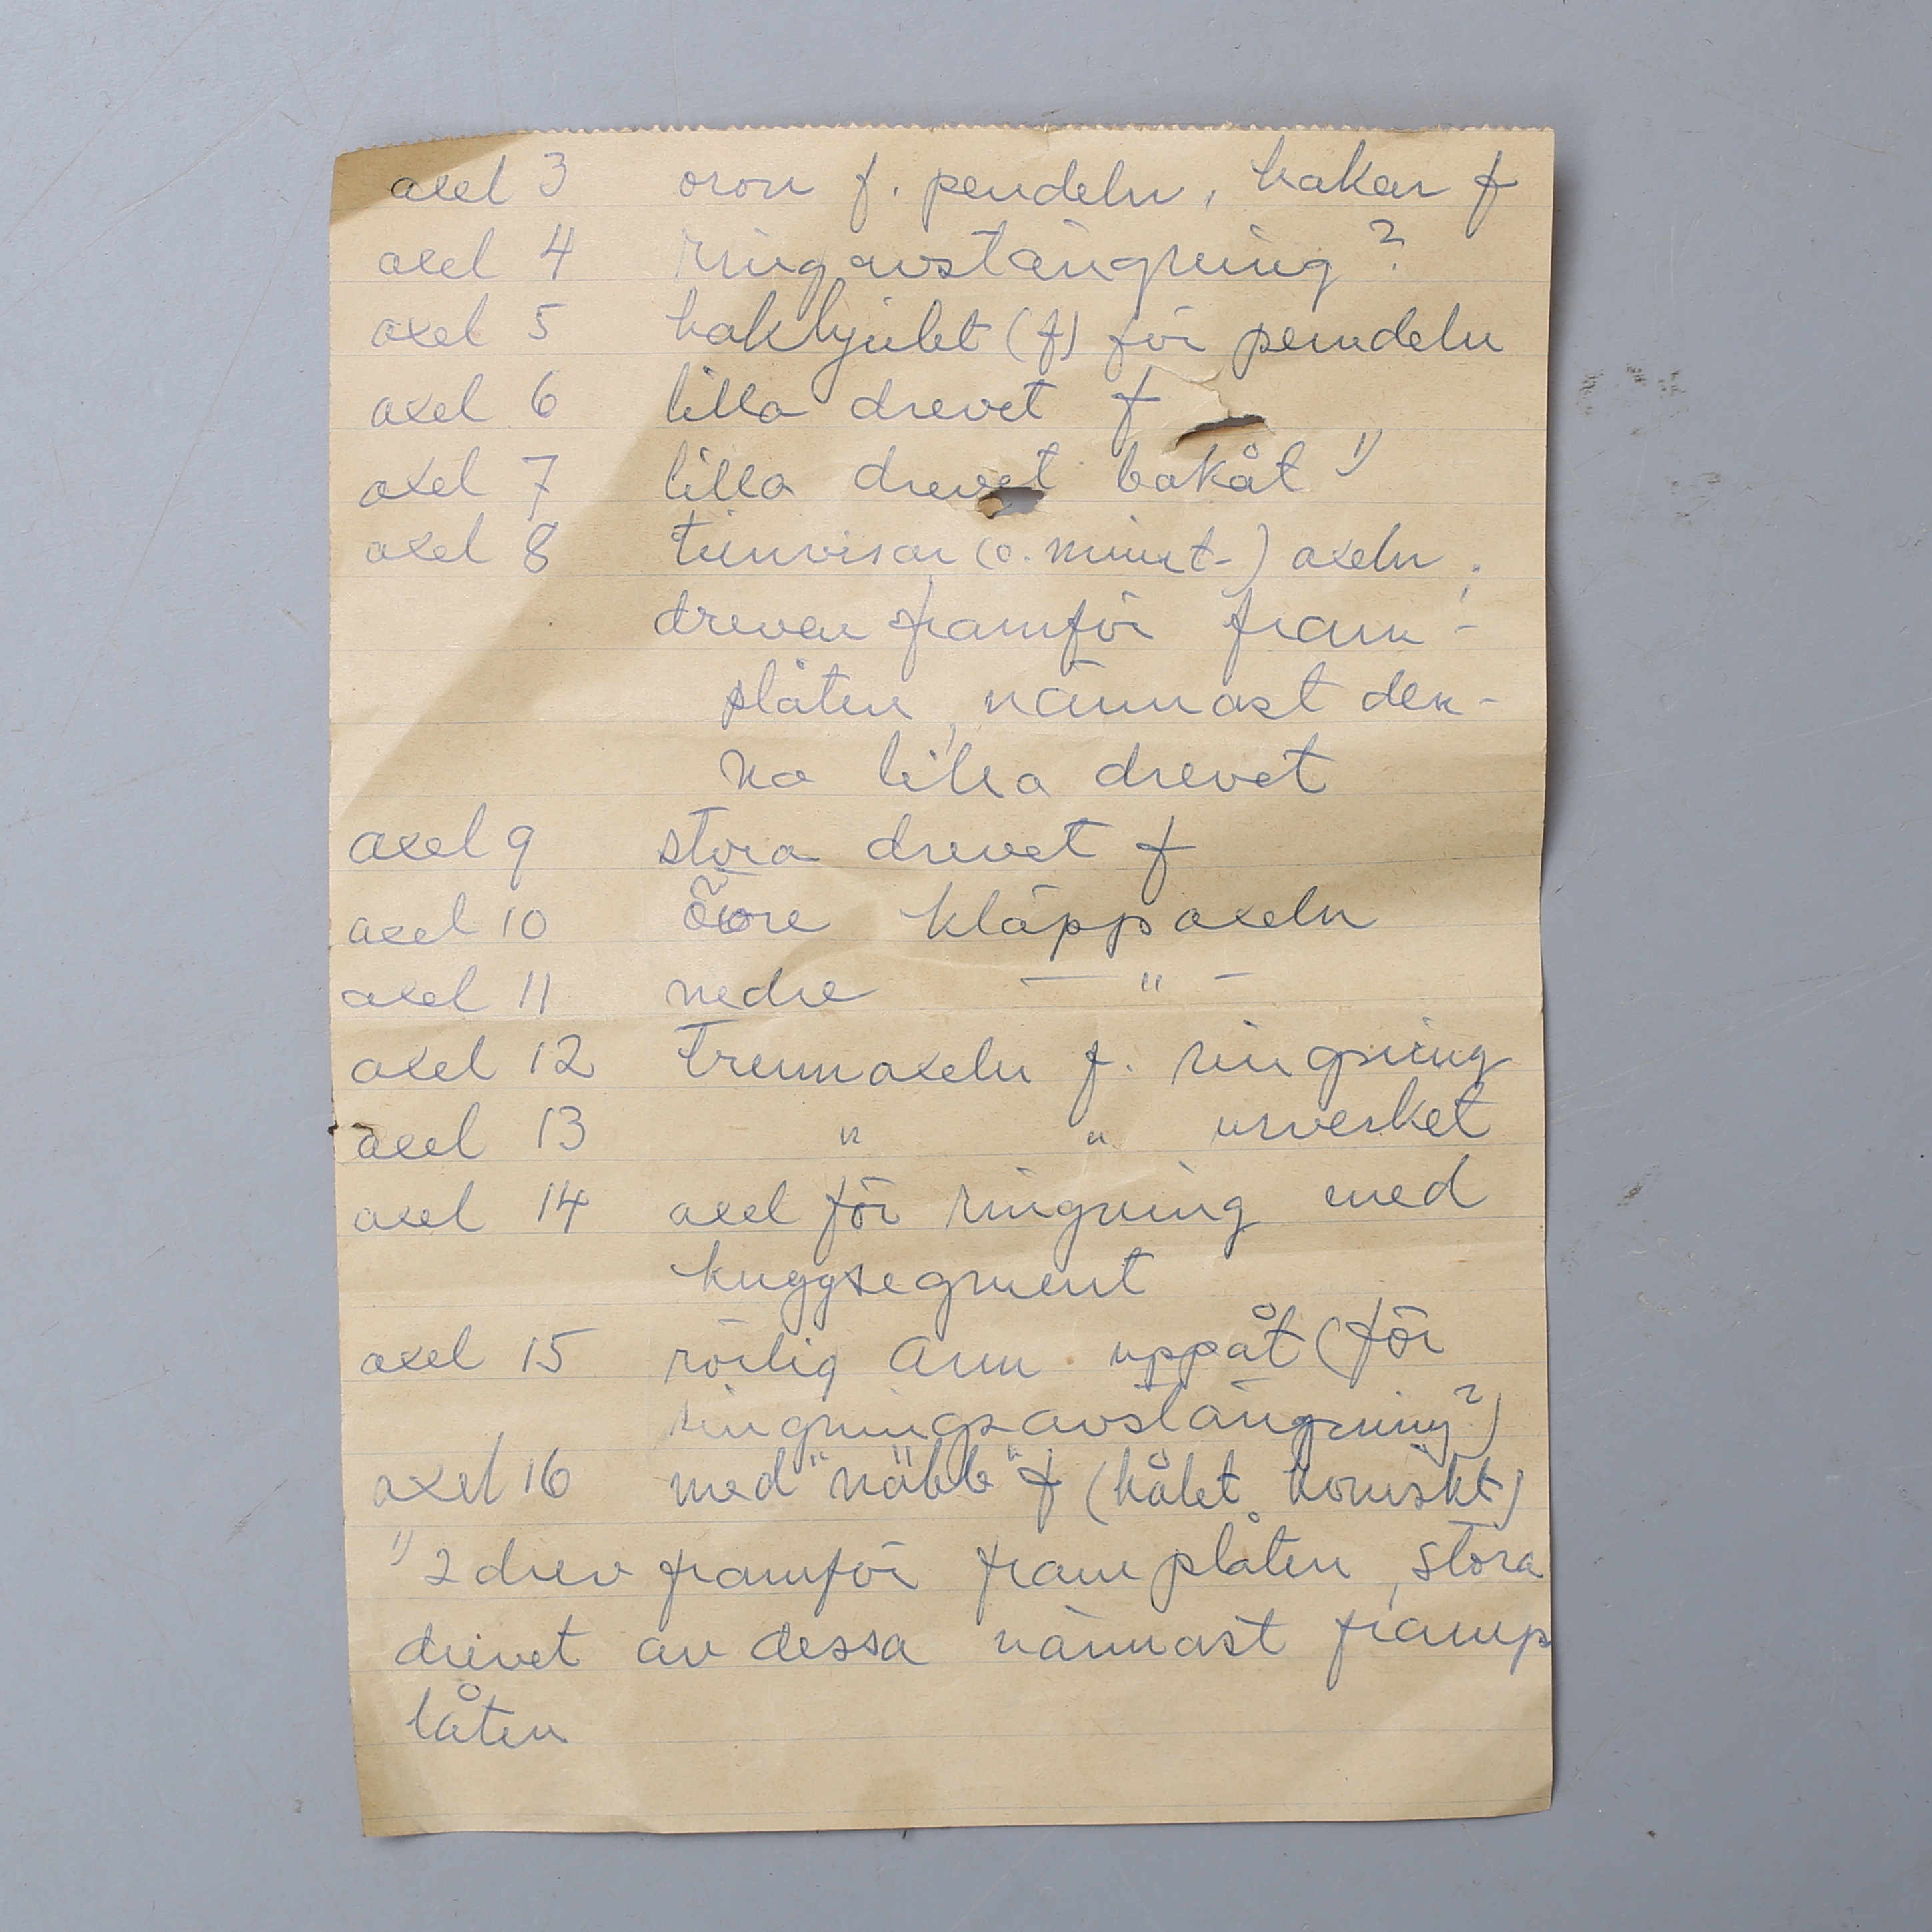 axel 3 oron f. pendeln, hakar f
axel 4 ringavstängning?
axel 5 hakhjulet (f) för pendeln
axel 6 lilla drevet f
axel 7 lilla drevet bakåt 1)
axel 8 timvisar (o. minut-) axeln;
dreven framför fram-
plåten, närmast den-
na lilla drevet
axel 9 stora drevet f
axel 10 övre kläppaxeln
axel 11 nedre — " —
axel 12 trumaxeln f. ringning
axel 13 " " urverket
axel 14 axel för ringning med
kuggsegment
axel 15 rörlig arm uppåt (för
ringningsavstängning?)
axel 16 med "näbb" f (hålet koniskt)
1) 2 drev framför framplåten, stora
drevet av dessa närmast framp
låten